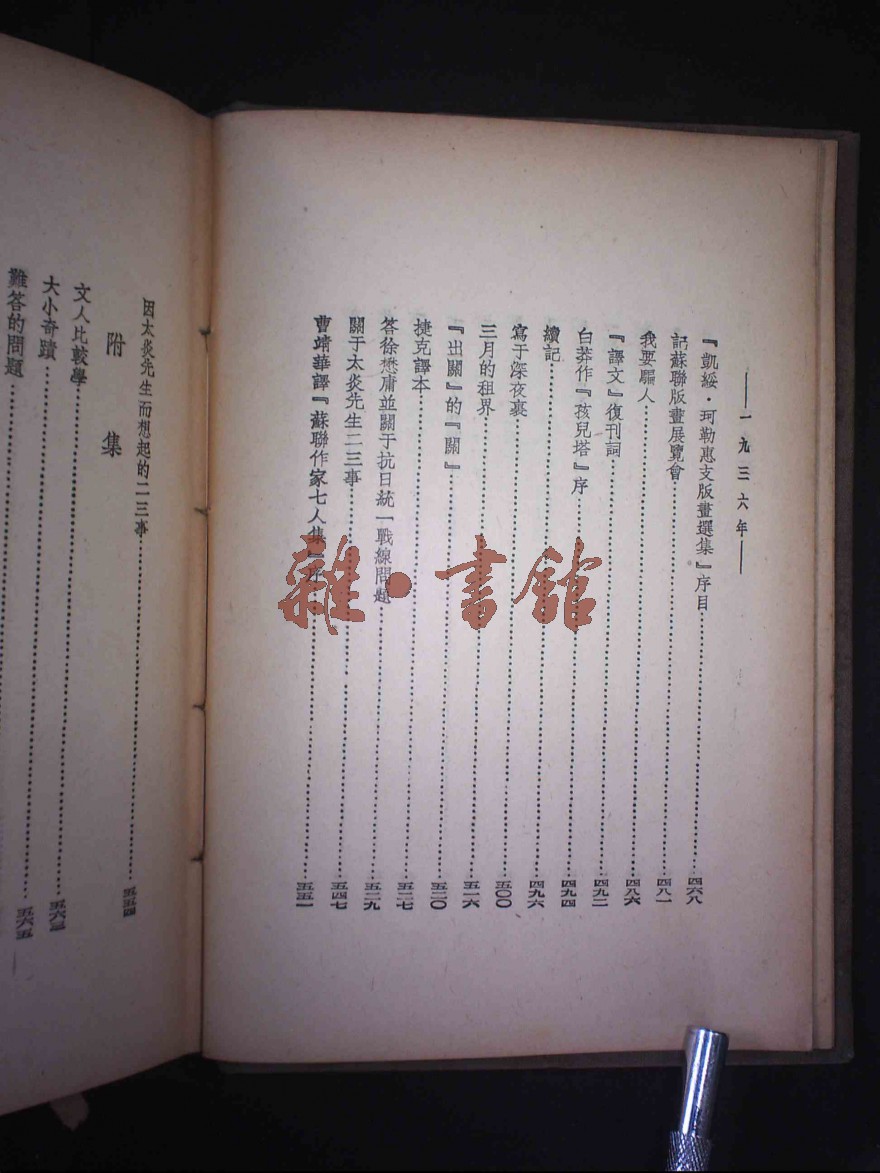 ——一九三六年——
『凱綏·珂勒惠支版畫選集』序目……四六八
記蘇聯版畫展覽會……四八一
我要騙人……四八六
『譯文』復刊詞……四九二
白莽作『孩兒塔』序……四九四
續記……四九六
寫于深夜裏……五〇〇
三月的租界……五一六
『出關』的『關』……五二〇
捷克譯本……五二七
答徐懋庸並關于抗日統一戰線問題……五二九
關于太炎先生二三事……五四七
曹靖華譯『蘇聯作家七人集』序……五五一
因太炎先生而想起的二三事……五五四
附集
文人比較學……五六三
大小奇蹟……
難答的問題……五六五
雜·書館